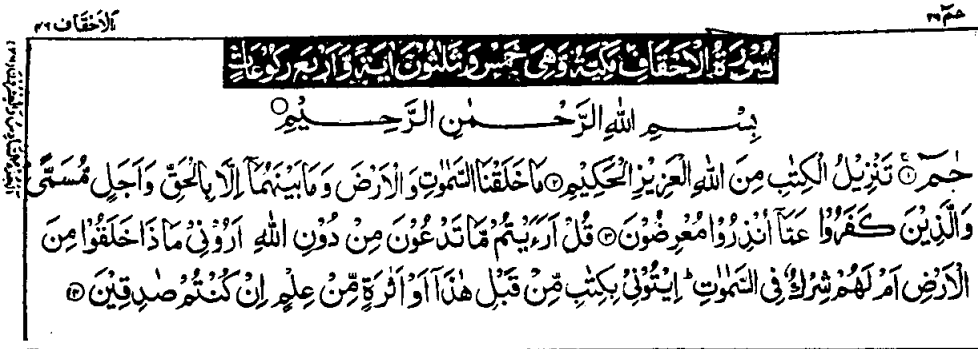 حٰمٓ ٢٦
الاحقاف ٤٦
سُوۡرَةُ الۡاَحۡقَافِ مَكِّيَّةٌ وَّهِيَ خَمۡسٌ وَّثَلٰثُوۡنَ اٰيَةً وَّاَرۡبَعُ رُكُوۡعَاتٍ
بِسۡمِ اللّٰهِ الرَّحۡمٰنِ الرَّحِيۡمِ
حٰمٓ ۚ﴿۱﴾ تَنۡزِيۡلُ الۡكِتٰبِ مِنَ اللّٰهِ الۡعَزِيۡزِ الۡحَكِيۡمِ ﴿۲﴾ مَا خَلَقۡنَا السَّمٰوٰتِ وَالۡاَرۡضَ وَمَا بَيۡنَهُمَاۤ اِلَّا بِالۡحَقِّ وَاَجَلٍ مُّسَمًّى ؕ
وَالَّذِيۡنَ كَفَرُوۡا عَمَّاۤ اُنۡذِرُوۡا مُعۡرِضُوۡنَ ﴿۳﴾ قُلۡ اَرَءَيۡتُمۡ مَّا تَدۡعُوۡنَ مِنۡ دُوۡنِ اللّٰهِ اَرُوۡنِيۡ مَاذَا خَلَقُوۡا مِنَ
الۡاَرۡضِ اَمۡ لَهُمۡ شِرۡكٌ فِي السَّمٰوٰتِ ؕ اِيۡتُوۡنِيۡ بِكِتٰبٍ مِّنۡ قَبۡلِ هٰذَاۤ اَوۡ اَثٰرَةٍ مِّنۡ عِلۡمٍ اِنۡ كُنۡتُمۡ صٰدِقِيۡنَ ﴿۴﴾